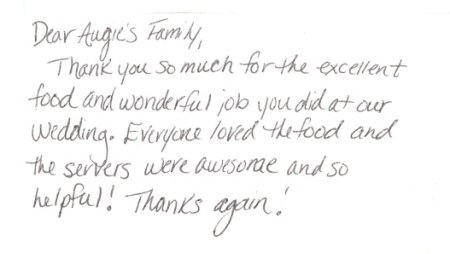 Dear Augie's Family,
Thank you so much for the excellent
food and wonderful job you did at our
wedding. Everyone loved the food and
the servers were awesome and so
helpful! Thanks again!